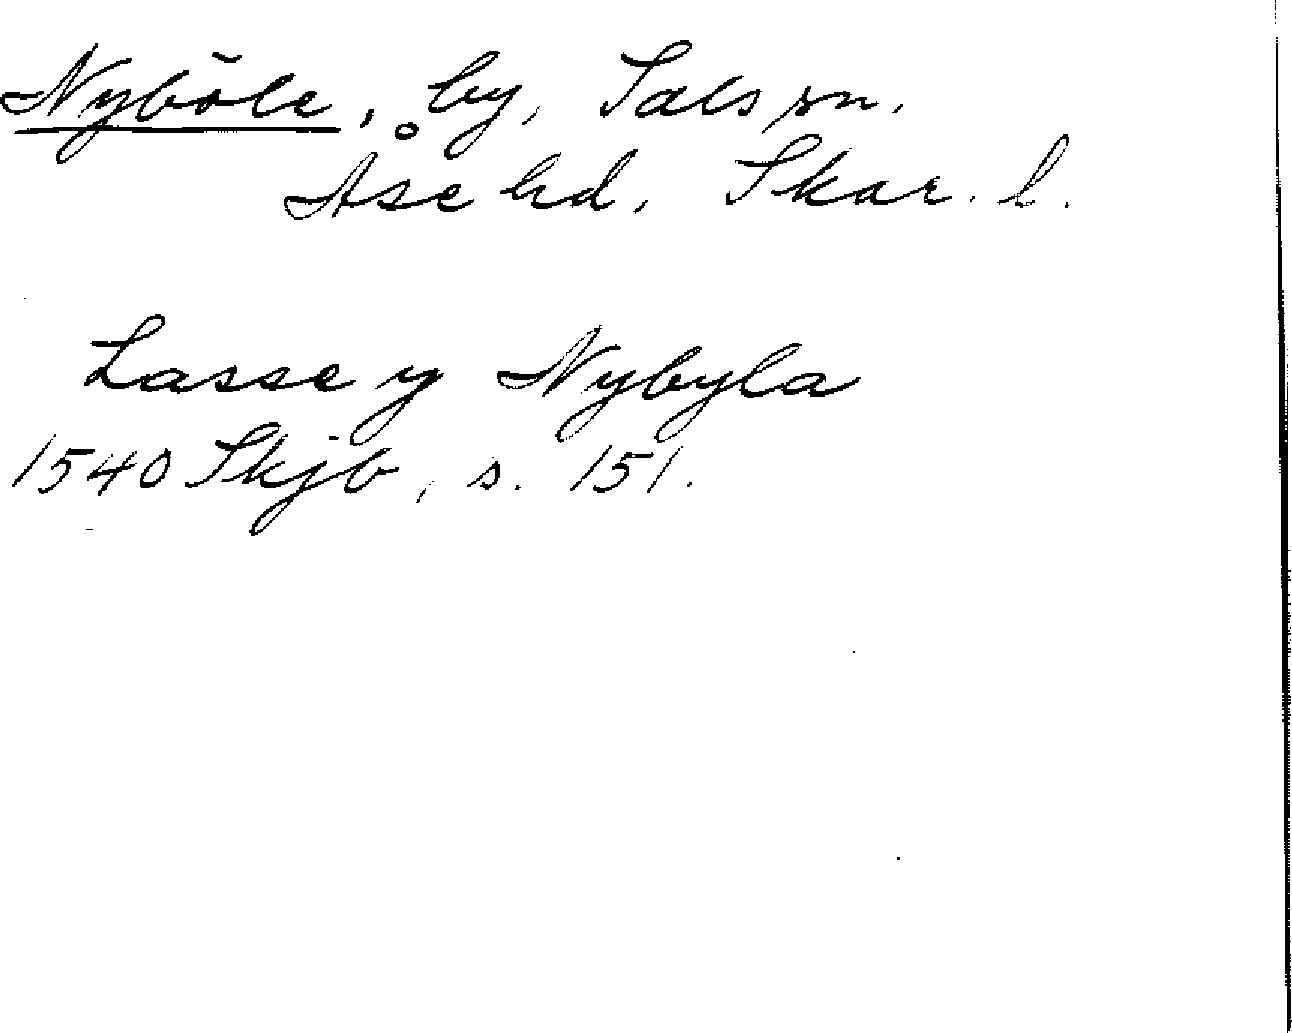 Nyböle, by, Sals sn.
Åse hd, Skar. l.
Lasse y Nybyla
1540 Skjb, s. 151.